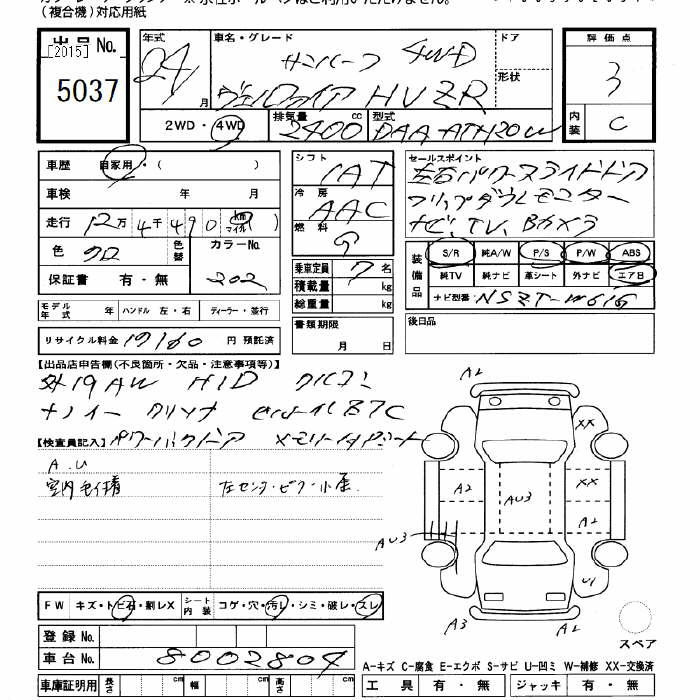 (複合機)対応用紙
出品No.
[2015]
5037
年式 24 月
車名・グレード サンルーフ 4WD
ヴェルファイア HV ZR
ドア
形状
評価点 3
内装 C
2WD・4WD 排気量 2400 cc 型式 DAA-ATH20W
車歴 自家用・( )
車検 年 月
走行 12万4千490 km マイル ( )
色 クロ 色替 カラーNo. 202
保証書 有・無
シフト IAT
冷房 AAC
燃料 G
乗車定員 7名
積載量 kg
総重量 kg
書類期限
月 日
セールスポイント 左右パワースライドドア
フリップダウンモニター
ナビ、TV、Bカメラ
装備品 S/R 純A/W P/S P/W ABS
純TV 純ナビ 革シート 外ナビ エアB
ナビ型番 NSZT-W61G
後日品
モデル年式 年 ハンドル 左・右 ディーラー・並行
リサイクル料金 円 預託済
【出品店申告欄(不良箇所・欠品・注意事項等)】
外19AW HID クルコン
ナノイー クリソナ
【検査員記入】 パワーバックドア メモリー付シート
A.U
室内毛付着 左センターピラー小凹
FW キズ・トビ石・割レX シート内装 コゲ・穴・汚レ・シミ・破レ・スレ
登録No.
車台No. 8002804
車庫証明用 長さ cm 幅 cm 高さ cm
A2
XX
A2 AU3 XX
A2
AU3
U1
A3 A2
スペア
A-キズ C-腐食 E-エクボ S-サビ U-凹ミ W-補修 XX-交換済
工具 有・無 ジャッキ 有・無